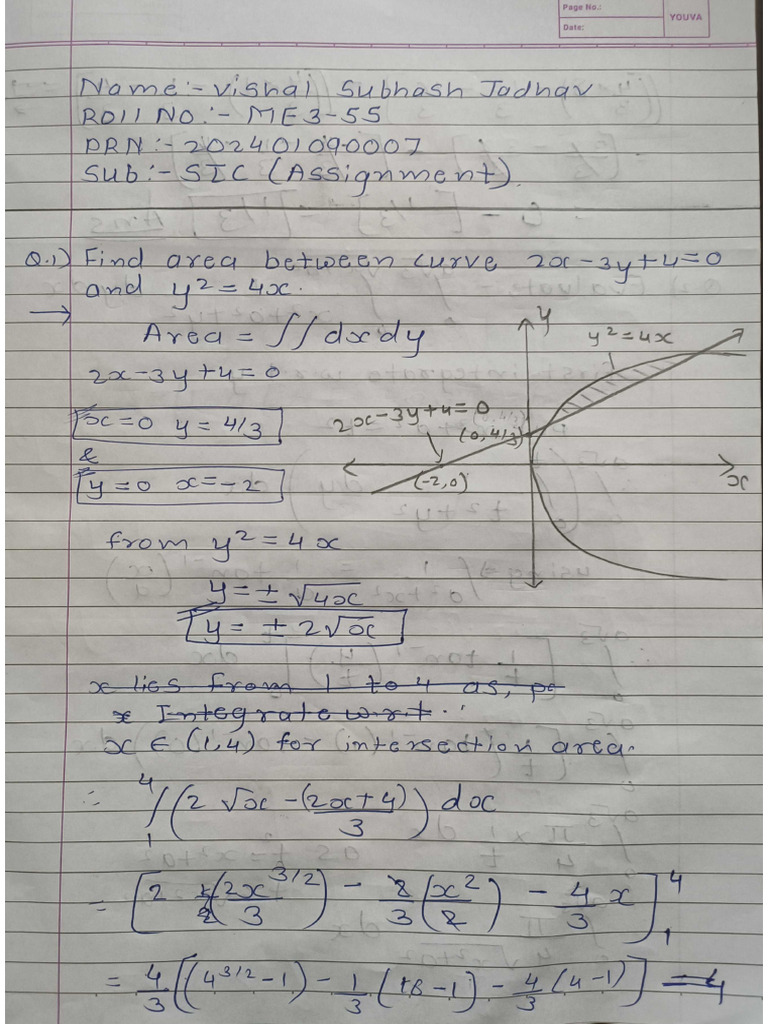 Page No.:
Date:
YOUVA
Name:- Vishal Subhash Jadhav
Roll No:- ME3-55
PRN:- 202401090007
Sub:- SIC (Assignment)
Q.1) Find area between curve 2x-3y+4=0
and y² = 4x.
→ Area = ∫∫ dxdy
2x-3y+4=0
x=0 y = 4/3
&
y=0 x=-2
y
y²=4x
2x-3y+4=0
(0,4/3)
(-2,0)
x
from y² = 4x
y = ± √4x
y = ± 2√x
x lies from 1 to 4 as,
x Integrate w.r.t.
x ∈ (1,4) for intersection area.
∴ ₁∫⁴ (2√x - (2x+4)/3) dx
= [2 (2x^3/2 / 3) - 2/3 (x²/2) - 4/3 x]₁⁴
= 4/3 [(4^3/2 - 1) - 1/3 (16-1) - 4/3 (4-1)]